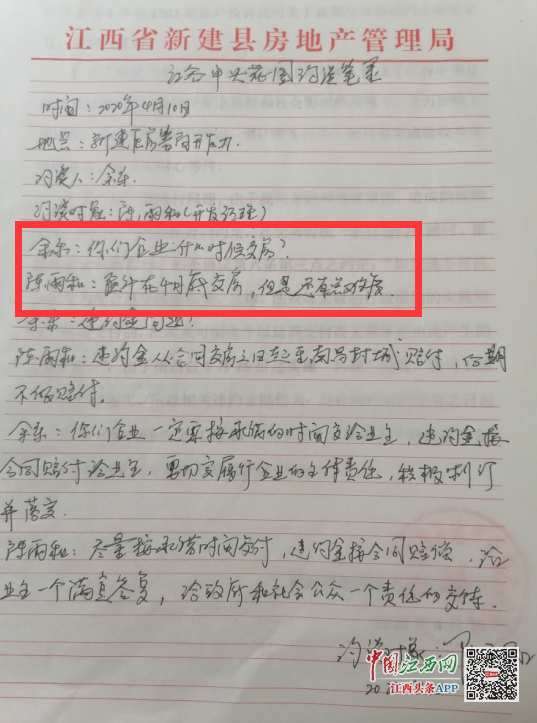 江西省新建县房地产管理局
红谷中央花园约谈笔录
时间：2020年4月10日
地点：新建区房管局开发办
约谈人：余东
约谈对象：陈雨和(开发经理)
余东：你们企业什么时候交房？
陈雨和：预计在4月底交房，但是还有点难度
余东：违约金问题？
陈雨和：违约金从合同交房之日起至南昌封城赔付，后期
不做赔付。
余东：你们企业一定要按承诺的时间交给业主，违约金按
合同赔付给业主，要切实履行企业的主体责任，积极制订
并落实
陈雨和：尽量按承诺时间交付，违约金按合同赔偿，给
业主一个满意答复，给政府和社会公众一个责任的交待。
约谈对象：
20
中国江西网
江西头条APP